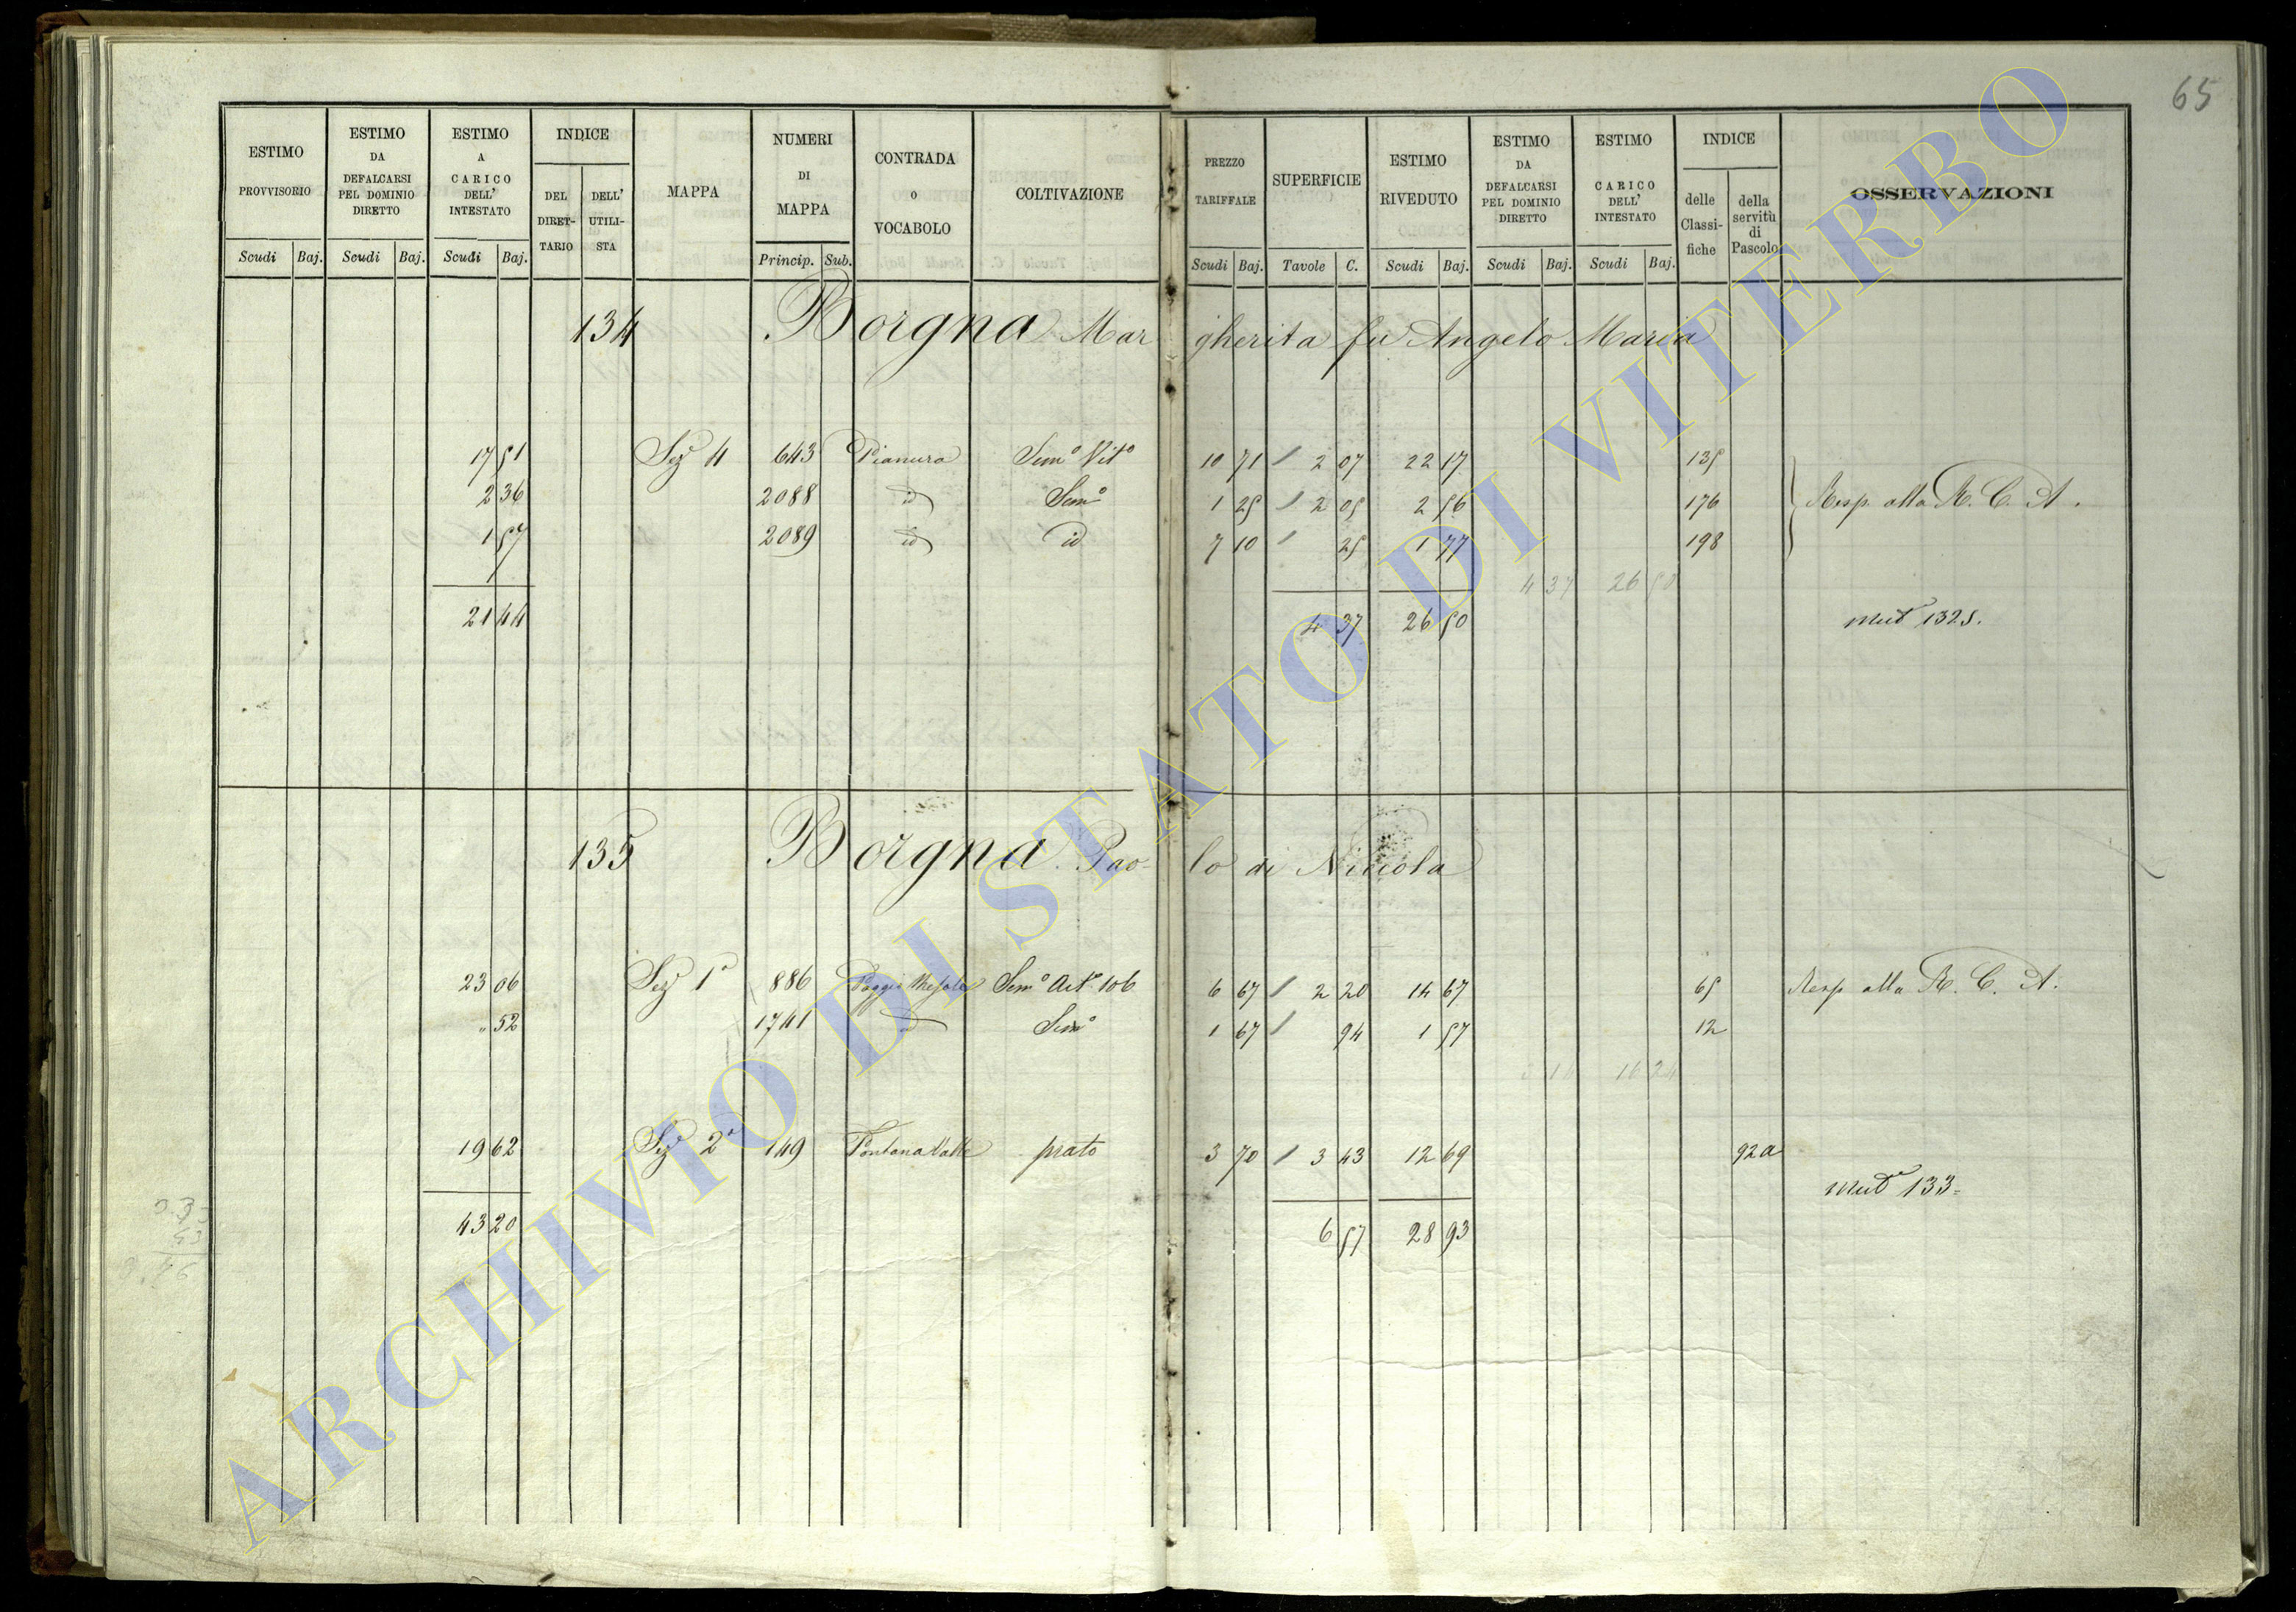 65
ESTIMO PROVVISORIO
ESTIMO DA DEFALCARSI PEL DOMINIO DIRETTO
ESTIMO A CARICO DELL' INTESTATO
INDICE
DEL DIRET-TARIO
DELL' UTILI-STA
MAPPA
NUMERI DI MAPPA
CONTRADA o VOCABOLO
COLTIVAZIONE
PREZZO TARIFFALE
SUPERFICIE
ESTIMO RIVEDUTO
ESTIMO DA DEFALCARSI PEL DOMINIO DIRETTO
ESTIMO CARICO DELL' INTESTATO
INDICE
delle Classi-fiche
della servitù di Pascolo
OSSERVAZIONI
Scudi Baj. Scudi Baj. Scudi Baj. Princip. Sub. Scudi Baj. Tavole C. Scudi Baj. Scudi Baj. Scudi Baj.
134 Borgna Margherita fu Angelo Maria
17 51 Sez 4 643 Pianura Semo Vito 10 71 2 07 22 17 135
2 36 2088 id Semo 1 25 2 05 2 56 176 Resp. alla R. C. A.
1 57 2089 id id 7 10 25 1 77 198
4 37 26 50
21 44 4 37 26 50 mut 1325.
135 Borgna Paolo di Niccola
23 06 Sez 1a 886 Poggio Semo Art 106 6 67 2 20 14 67 65 Resp alla R. C. A.
" 52 1741 Semo 1 67 94 1 57 12
16 24
19 62 Sez 2a 149 Fontana Valle prato 3 70 3 43 12 69 92a
mut 133
43 20 6 57 28 93
ARCHIVIO DI STATO DI VITERBO